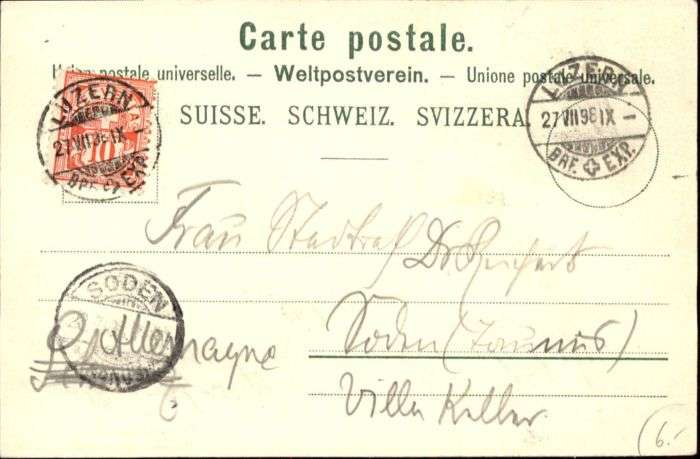 Carte postale.
Union postale universelle. — Weltpostverein. — Unione postale universale.
SUISSE. SCHWEIZ. SVIZZERA.
LUZERN
27 VII 98 IX -
BRF. EXP.
10
LUZERN
27 VII 98 IX -
BRF. EXP.
Frau Stadtrath Dr Reichert
SODEN
Soden (Taunus)
Allemagne
Villa Keller.
6.-